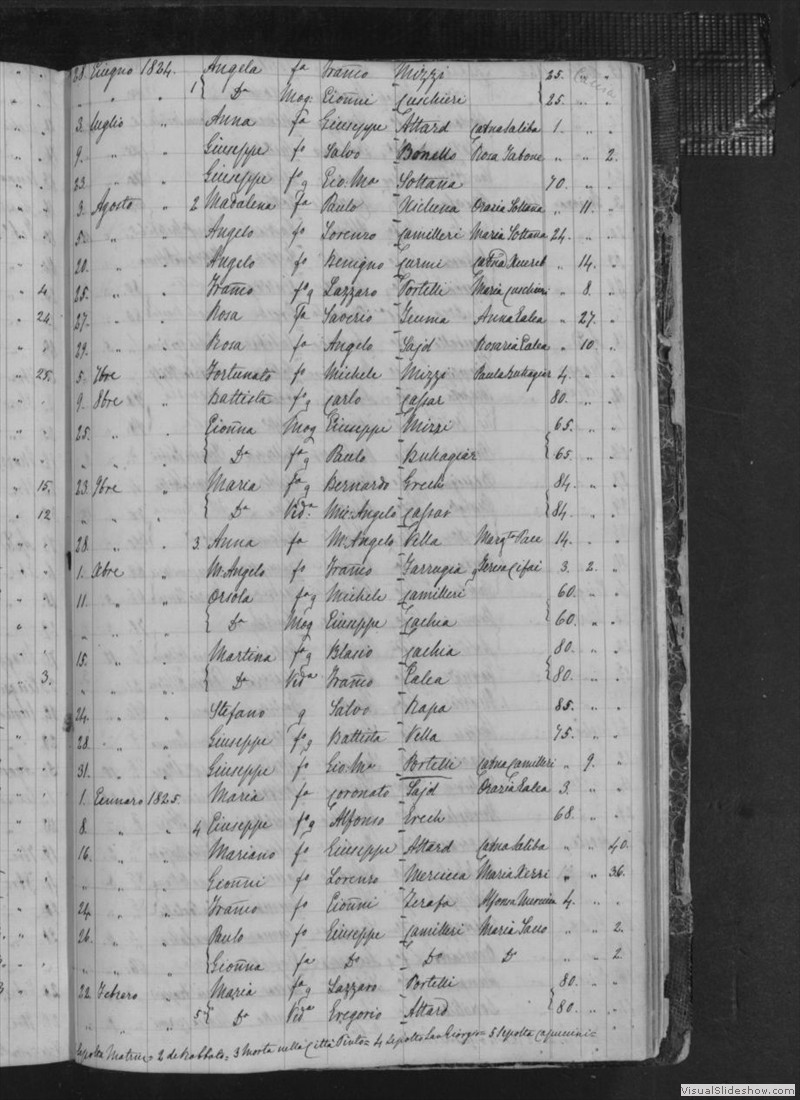 28 Giugno 1824. Angela fa Franco Mizzi 25. " "
" " " 1 { Da Mog: Gionni Cuschieri { 25. " "
3. luglio " Anna fa Giuseppe Attard Catna Saliba 1. " "
9. " " Giuseppe fo Salvo Bonello Rosa Tabone " " 2.
23. " " Giuseppe fo g Gio: Ma Soltana 70. " "
3. Agosto " 2 Madalena fa Paulo Xicluna Orazia Soltana " 11. "
5. " " Angelo fo Lorenzo Camilleri Maria Soltana 24. " "
20. " " Angelo fo Benigno Curmi Catna Xuereb " 14. "
25. " " Franco fo g Lazzaro Portelli Maria Cuschieri " 8. "
27. " " Rosa fa Saverio Zeuma Anna Galea " 27. "
29. " " Rosa fa Angelo Sajd Rosaria Galea " 10. "
5. 7bre " Fortunato fo Michele Mizzi Paula Buhagiar 4. " "
9. 8bre " Battista fo g Carlo Cassar 80. " "
25. " " Gionna Mog Giuseppe Mizzi 65. " "
{ Da fa g Paulo Buhagiar { 65. " "
23. 9bre " Maria fa g Bernardo Grech 84. " "
" " " { Da Vida: Mic: Angelo Cassar { 84. " "
28. " " 3 Anna fa M. Angelo Vella Margta Pace 14. " "
1. Xbre " M. Angelo fo Franco Farrugia g Teresa Cifai 3. 2. "
11. " " Orsola fa g Michele Camilleri 60. " "
" " " { Da Mog Giuseppe Cachia { 60. " "
15. " " Martina fa g Blasio Cachia 80. " "
" " " { Da Vida Franco Galea { 80. " "
24. " " Stefano g Salvo Rapa 85. " "
28. " " Giuseppe fo g Battista Vella 75. " "
31. " " Giuseppe fo Gio: Ma Portelli Catna Camilleri " 9. "
1. Gennaro 1825. Maria fa Coronato Sajd Orazia Galea 3. " "
8. " " 4 Giuseppe fo g Alfonso Grech 68. " "
16. " " Mariano fo Giuseppe Attard Catna Saliba " " 40.
" " " Gionni fo Lorenzo Mercieca Maria Xerri " " 36.
24. " " Franco fo Gionni Zerafa 4. " "
26. " " Paulo fo Giuseppe Camilleri Maria " " 2.
" " " { Gionna fa Do Do Do " " 2
22. Febrero " Maria fa g Lazzaro Portelli 80. " "
" " " 5 { Da Vida Gregorio Attard { 80. " "
Sepolta Matrice = 2 de Rabbato = 3 Morta nella Città Pinto = 4 Sepolto San Giorgio = 5 Sepolta Capuccini =
4.
24.
25.
15.
12
3.
VisualSlideshow.com